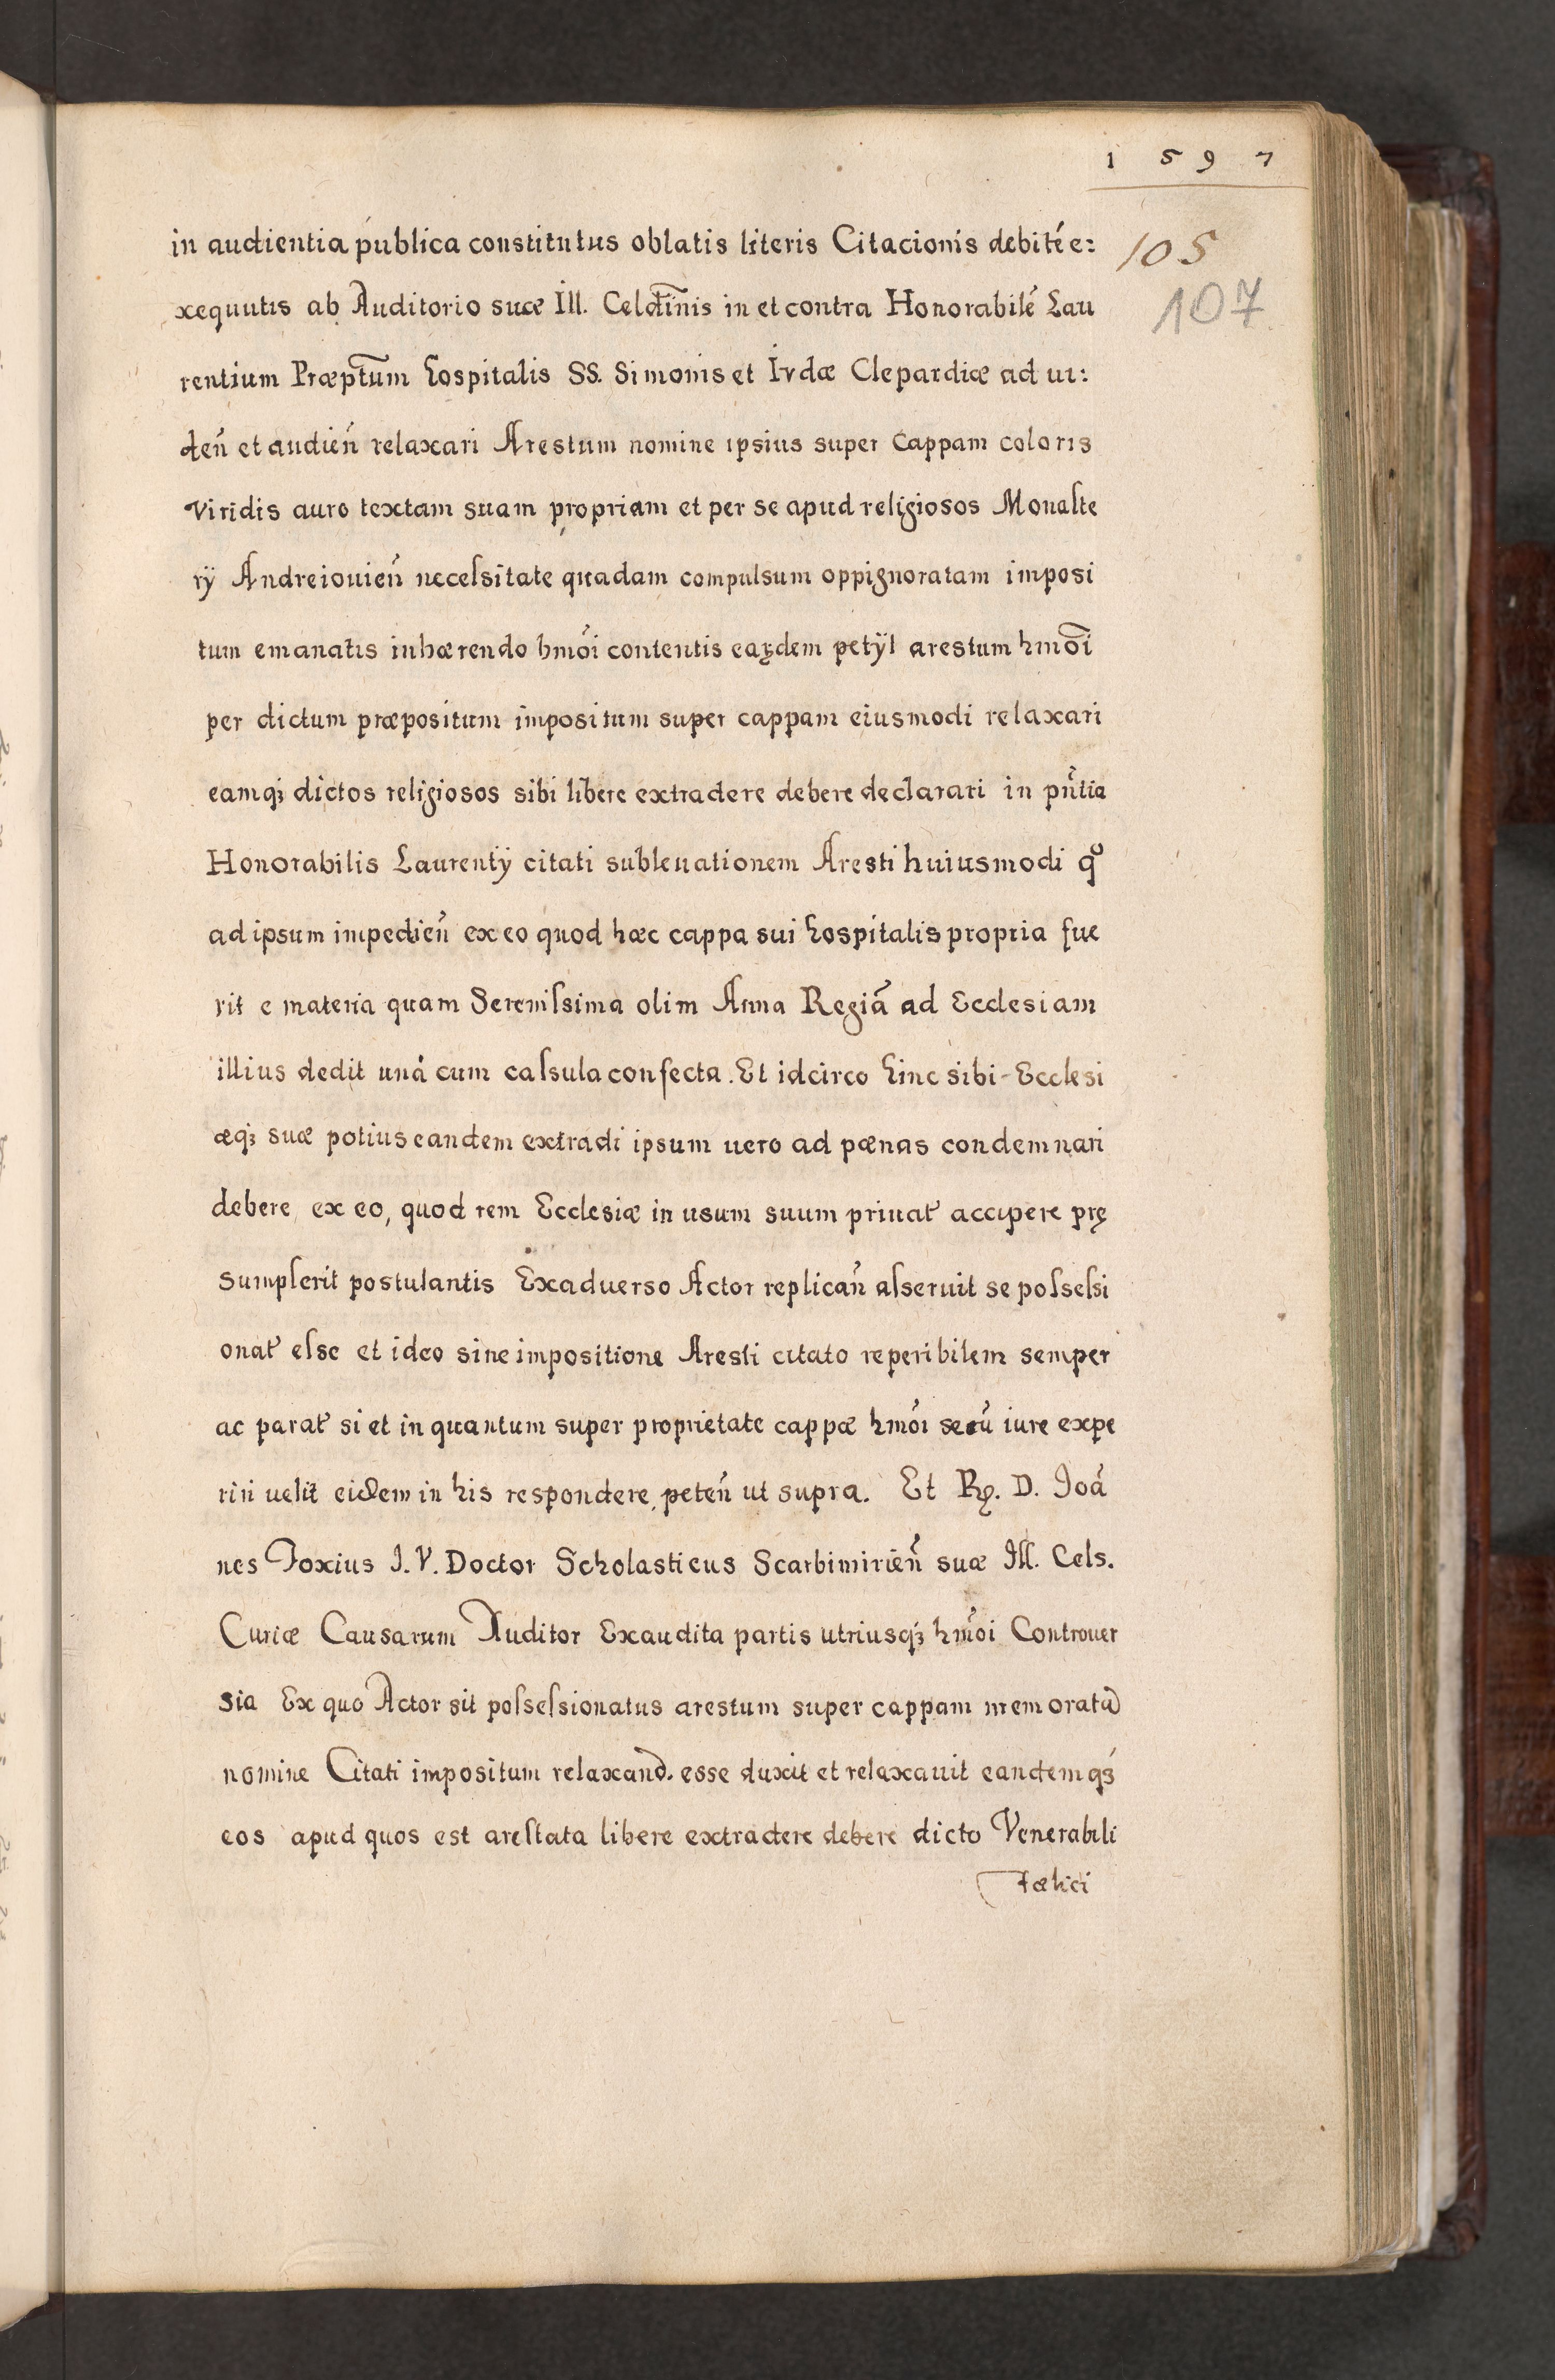 1 5 9 7
in audientia publica constitutus oblatis literis Citacionis debité e:
105
xequutis ab Auditorio suæ Ill. Celdīnis in et contra Honorabilē Lau
107
rentium Præptum hospitalis SS. Simonis et Ivdæ Clepardiæ ad ui:
deñ et audieñ relaxari Arestum nomine ipsius super Cappam coloris
viridis auro textam suam propriam et per se apud religiosos Monaste
rÿ Andreiouieñ necessitate quadam compulsum oppignoratam imposi
tum emanatis inhærendo hmōi contentis eaꝝdem petÿt arestum hmōi
per dictum præpositum impositum super cappam eiusmodi relaxari
eamqꝫ dictos religiosos sibi libere extradere debere declarari in pñtia
Honorabilis Laurentÿ citati subleuationem Aresti huiusmodi qº
ad ipsum impedieñ ex eo quod hæc cappa sui hospitalis propria fue
rit e materia quam Serenissima olim Anna Reginā ad Ecclesiam
illius dedit unā cum cassula confecta. Et idcirco hinc sibi-Ecclesi
æqꝫ suæ potius eandem extradi ipsum uero ad pænas condemnari
debere ex eo, quod rem Ecclesiæ in usum suum priuat̃ accipere prę
sumpserit postulantis Exaduerso Actor replicañ asseruit se possessi
onat̃ esse et ideo sine impositione Aresti citato reperibilem semper
ac parat̃ si et in quantum super proprietate cappæ hmōi secū iure expe
riri uelit eidem in his respondere, peteñ ut supra. Et R. D. Joā
nes Foxius J. V. Doctor Scholasticus Scarbimirieñ suæ Ill. Cels.
Curiæ Causarum Auditor Exaudita partis utriusqꝫ hmōi Controuer
sia Ex quo Actor sit possessionatus arestum super cappam memoratā
nomine Citati impositum relaxand. esse duxit et relaxauit eandemqꝫ
eos apud quos est arestata libere extradere debere dicto Venerabili
Fælici